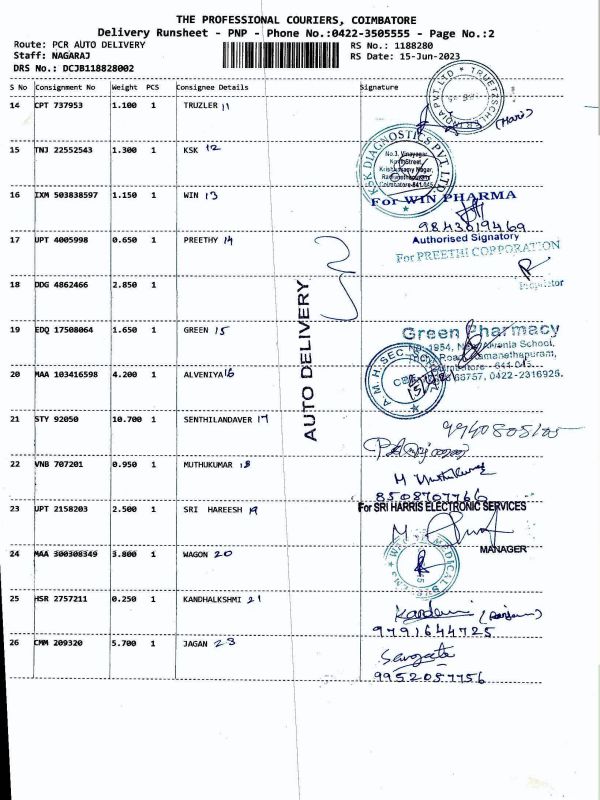 THE PROFESSIONAL COURIERS, COIMBATORE
Delivery Runsheet - PNP - Phone No.:0422-3505555 - Page No.:2
Route: PCR AUTO DELIVERY
RS No.: 1188280
Staff: NAGARAJ
RS Date: 15-Jun-2023
DRS No.: DCJB118828002
S No Consignment No Weight PCS Consignee Details Signature
14 CPT 737953 1.100 1 TRUZLER 11
(Hari)
15 TNJ 22552543 1.300 1 KSK 12
KSK DIAGNOSTICS PVT. LTD
No.3, Vinayagar
Krishnasamy Nagar,
Ramanathapuram
Coimbatore-641 045
16 IXM 503838597 1.150 1 WIN 13
For WIN PHARMA
9843019469
Authorised Signatory
17 UPT 4005998 0.650 1 PREETHY 14
For PREETHI CORPORATION
Proprietor
18 DDG 4862466 2.850 1
AUTO DELIVERY
19 EDQ 17508064 1.650 1 GREEN 15
Green Pharmacy
School,
Road, Ramanathapuram,
Coimbatore - 641 045.
66757, 0422-2316925.
20 MAA 103416598 4.200 1 ALVENIYA 16
A. M. H. SEC
21 STY 92050 10.700 1 SENTHILANDAVER 17
9940805105
22 VNB 707201 0.950 1 MUTHUKUMAR 18
M Muthukumar
8508707766
23 UPT 2158203 2.500 1 SRI HAREESH 19
For SRI HARRIS ELECTRONIC SERVICES
MANAGER
24 MAA 300308349 3.800 1 WAGON 20
MEDICAL
25 HSR 2757211 0.250 1 KANDHALKSHMI 21
9791644725
26 CMM 209320 5.700 1 JAGAN 23
Sangeeta
9952057756